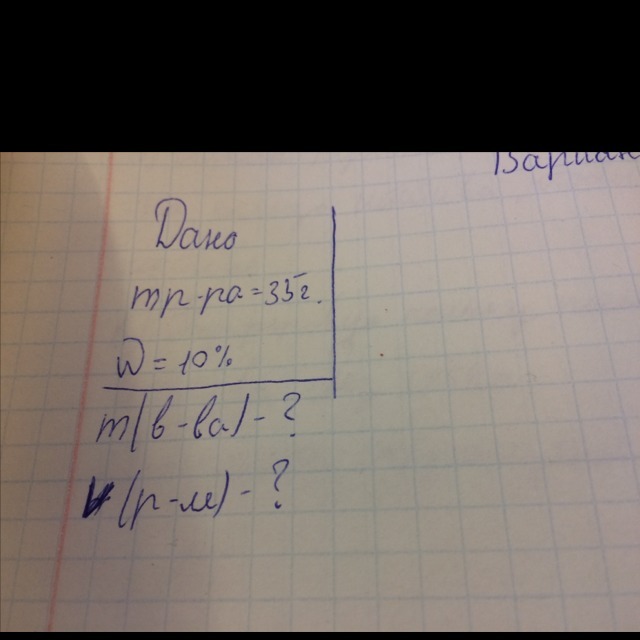 Вариан
Дано
mр-ра=35г.
W=10%
m(в-ва)-?
V(р-ля)-?